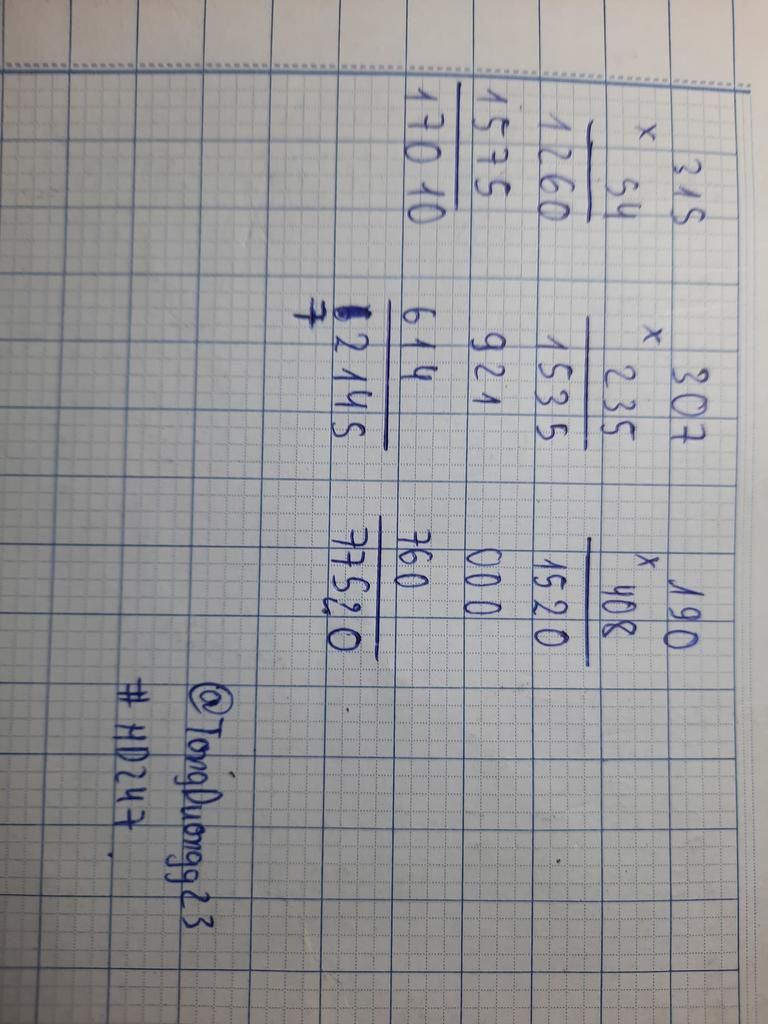 315
x 54
1260
1575
17010
307
x 235
1535
921
614
2145
7
190
x 408
1520
000
760
77520
@TongDuongg23
# HD247